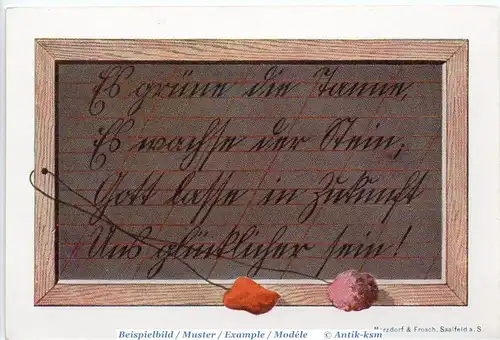 Es grüne die Tanne,
Es wachse der Stein,
Gott lasse in Zukunft
Uns glücklicher sein!
Merzdorf & Frosch, Saalfeld a. S.
Beispielbild / Muster / Example / Modéle © Antik-ksm